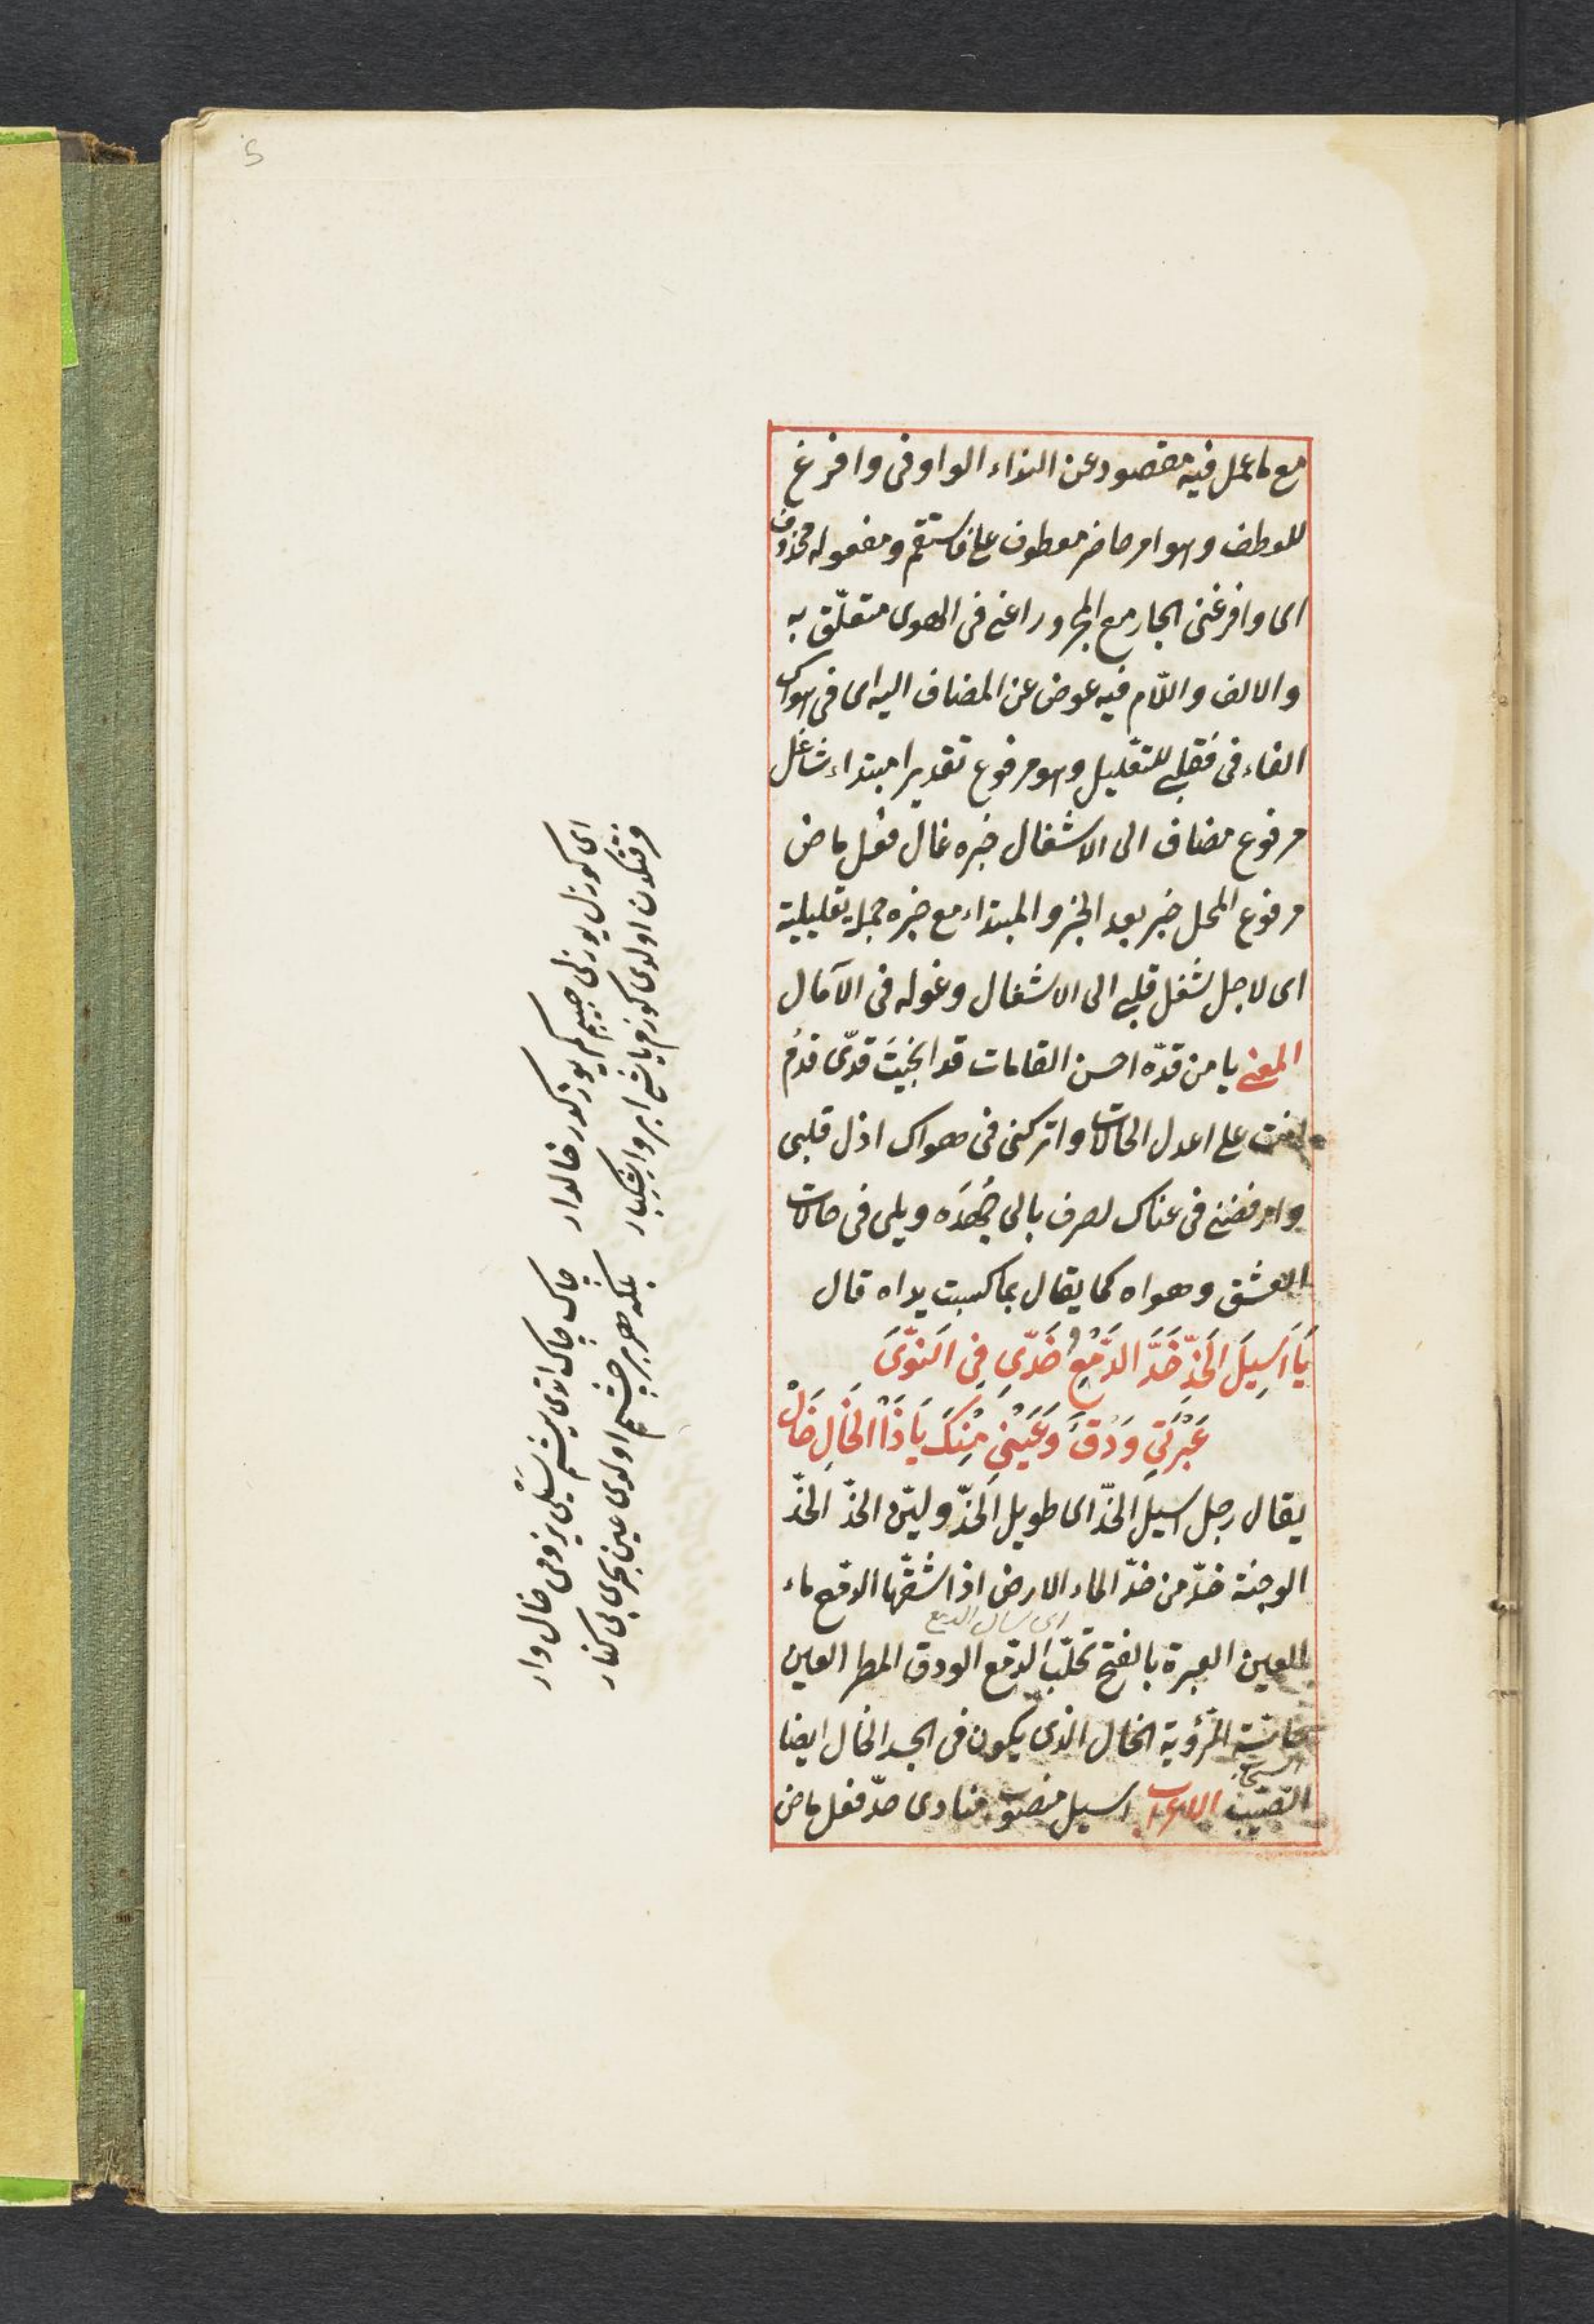 5
مع ما عمل فيه مقصود عن النداء الواو فى وافرغ
للعطف وهو امر حاضر معطوف على فاستقم ومفعوله محذوف
اى وافرغنى الجار مع المجرور اعنى فى الهوى متعلّق به
والالف واللّام فيه عوض عن المضاف اليه اى فى هواك
الفاء فى فقلبى للتعليل وهو مرفوع تقديرا مبتداء شاغل
مرفوع مضاف الى الاشغال خبره غال فعل ماض
مرفوع المحل خبر بعد الخبر والمبتداء مع خبره جملة تعليلية
اى لاجل شغل قلبى الى الاشغال وغوله فى الآمال
المعنى يا من قدّه احسن القامات قد انحيت قدّى قدم
انت على اعدل الحالات واتركنى فى هواك اذل قلبى
وارفضنى فى عناك لصرف بالى جُهدَه ويلى فى حالات
العشق وهواه كما يقال بما كسبت يداه قال
يَا اَسِيلَ الخَدِّ خَدَّ الدَّمْعُ خَدِّى فِى النَّوَى
عَبْرَتِى وَدْقٌ وَعَيْنِى مِنْكَ يَا ذَا الخَالِ خَالْ
يقال رجل اسيل الخدّ اى طويل الخدّ وليّن الخدّ الخدّ
الوجنة خدّ من خدّ الماء الارض اذا شقّها الدمع ماء
اى سال الدمع
العين العبرة بالفتح تحلّب الدمع الودق المطر العين
حاسّة الرؤية الخال الذى يكون فى الجسد الخال ايضا
السحاب
الاعراب اسيل منصوب منادى خدّ فعل ماض
اى كوزل يوزلى حبيبم كم يوزكدر خالدار
فرقتكدن اولدى كوزم ياشى ابر واشكبار
چاك چاك اتدى يشم سيلى يزومى خال وار
بلكه هر بر چشم اولدى عين بحرى بى كنار